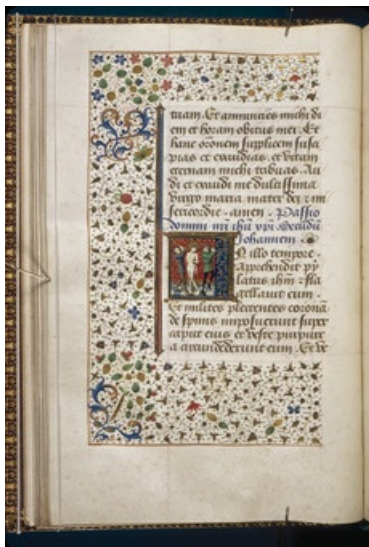 tuam. Et annuncies michi di
em et horam obitus mei. Et
hanc orõnem supplicem susci
pias et exaudias. et vitam
eternam michi tribuas. Au
di et exaudi me dulcissima
virgo maria mater dei et mi
sericordie. amen. Passio
domini nr̃i ihũ xp̃i secũdũ
Johannem.
IN illo tempore
apprehendit py
latus ihm̃ et fla
gellavit eum.
Et milites plectentes coronã
de spinis imposuerunt super
caput eius et veste purpure
a circundederunt eum. Et ve